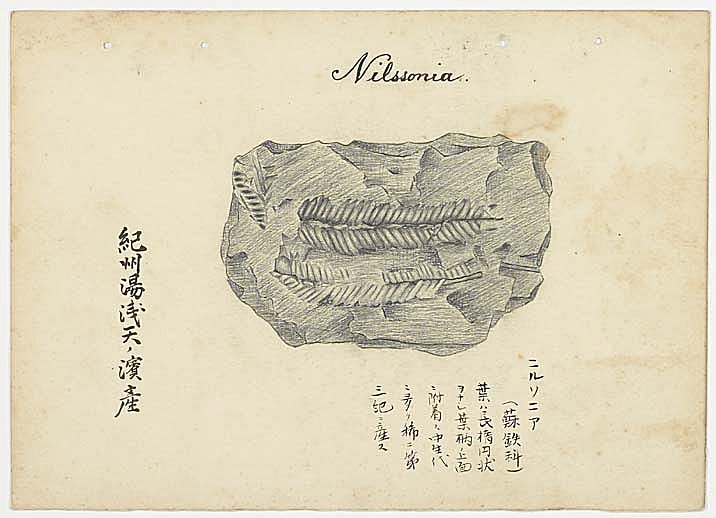 Nilssonia.
ニルソニア
（蘇鉄科）
葉ハ長楕円状
ヲナシ葉柄ノ上面
ニ附着ス中生代
ニ多ク稀ニ第
三紀ニ産ス
紀州湯浅天ノ濱産